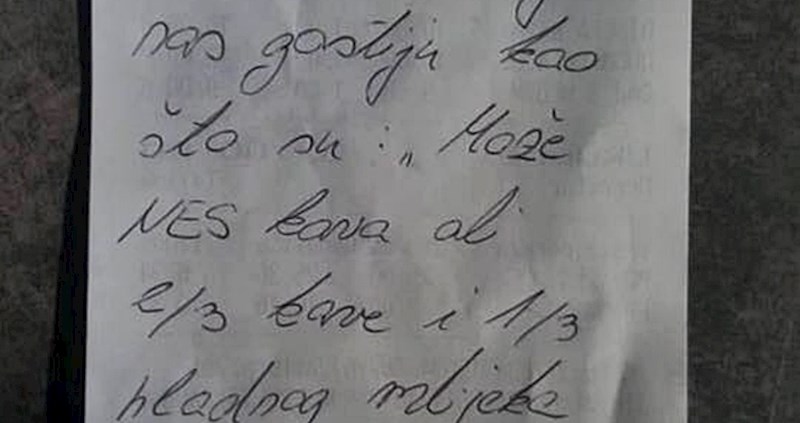 nas gostiju kao
što su : „ Može
NES kava al
2/3 kave i 1/3
hladnog mlijeka